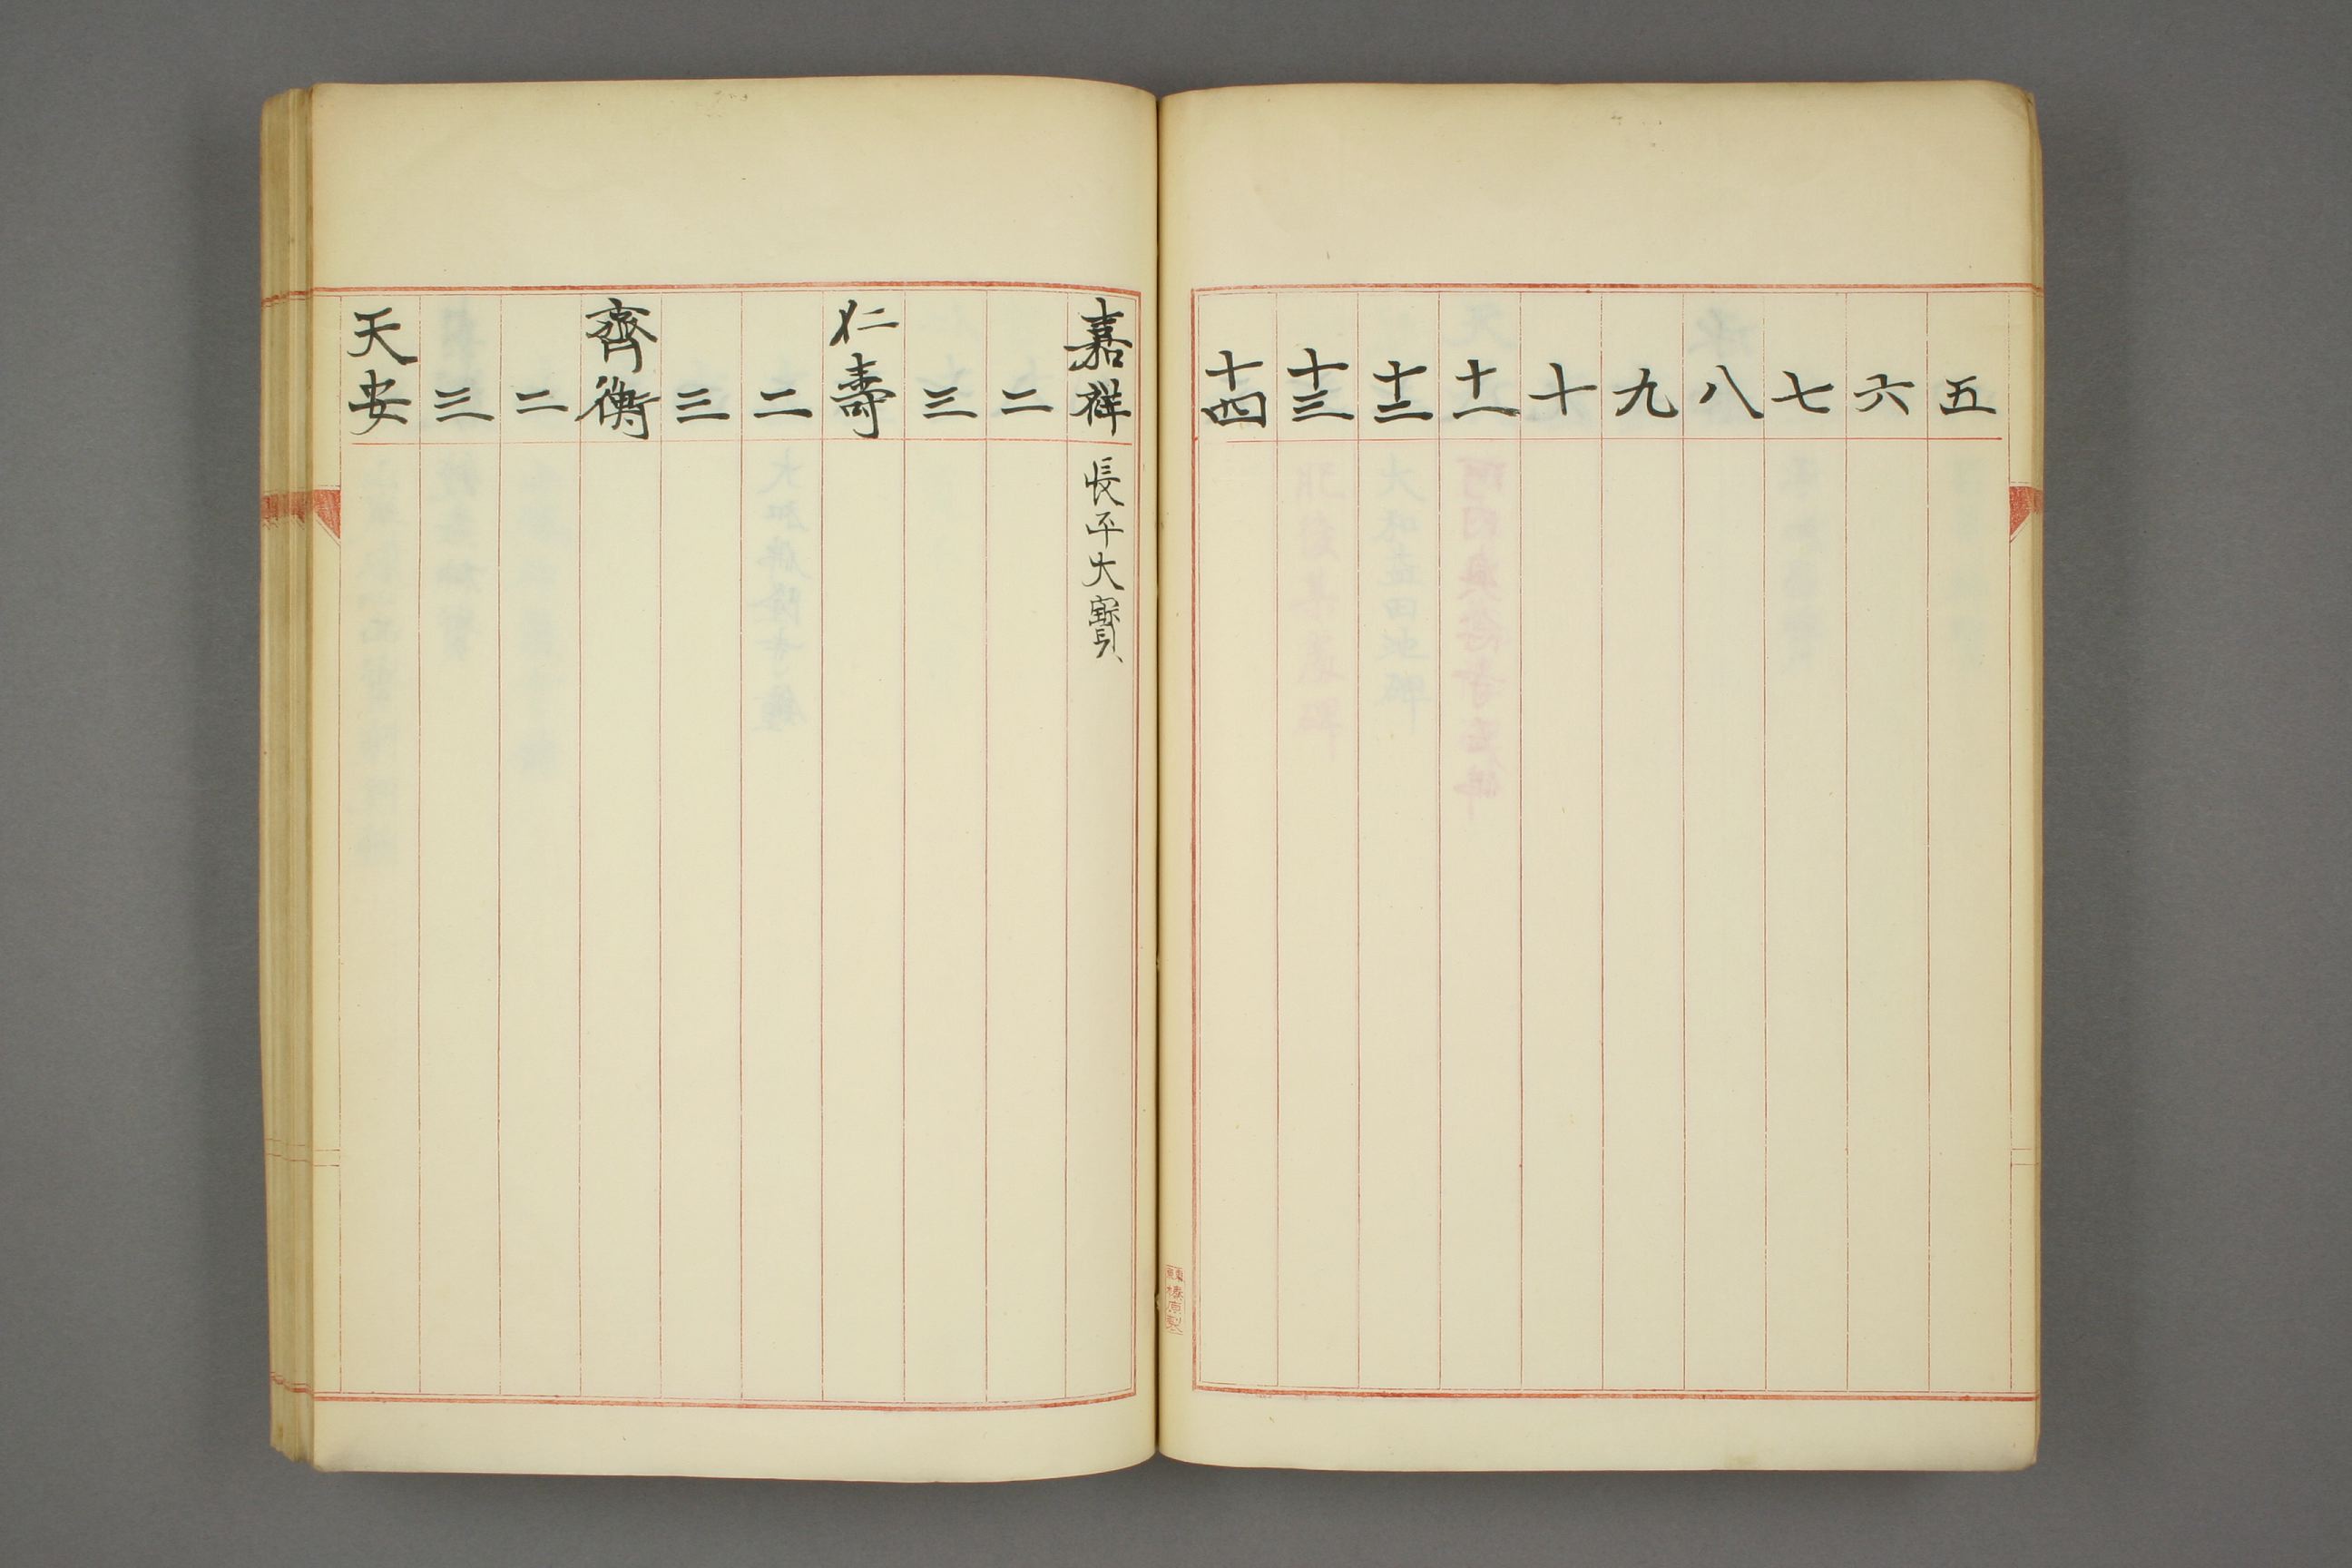 五
六
七
八
九
十
十一
十二
十三
十四
嘉祥 長平大寳
二
三
仁壽
二
三
齊衡
二
三
天安